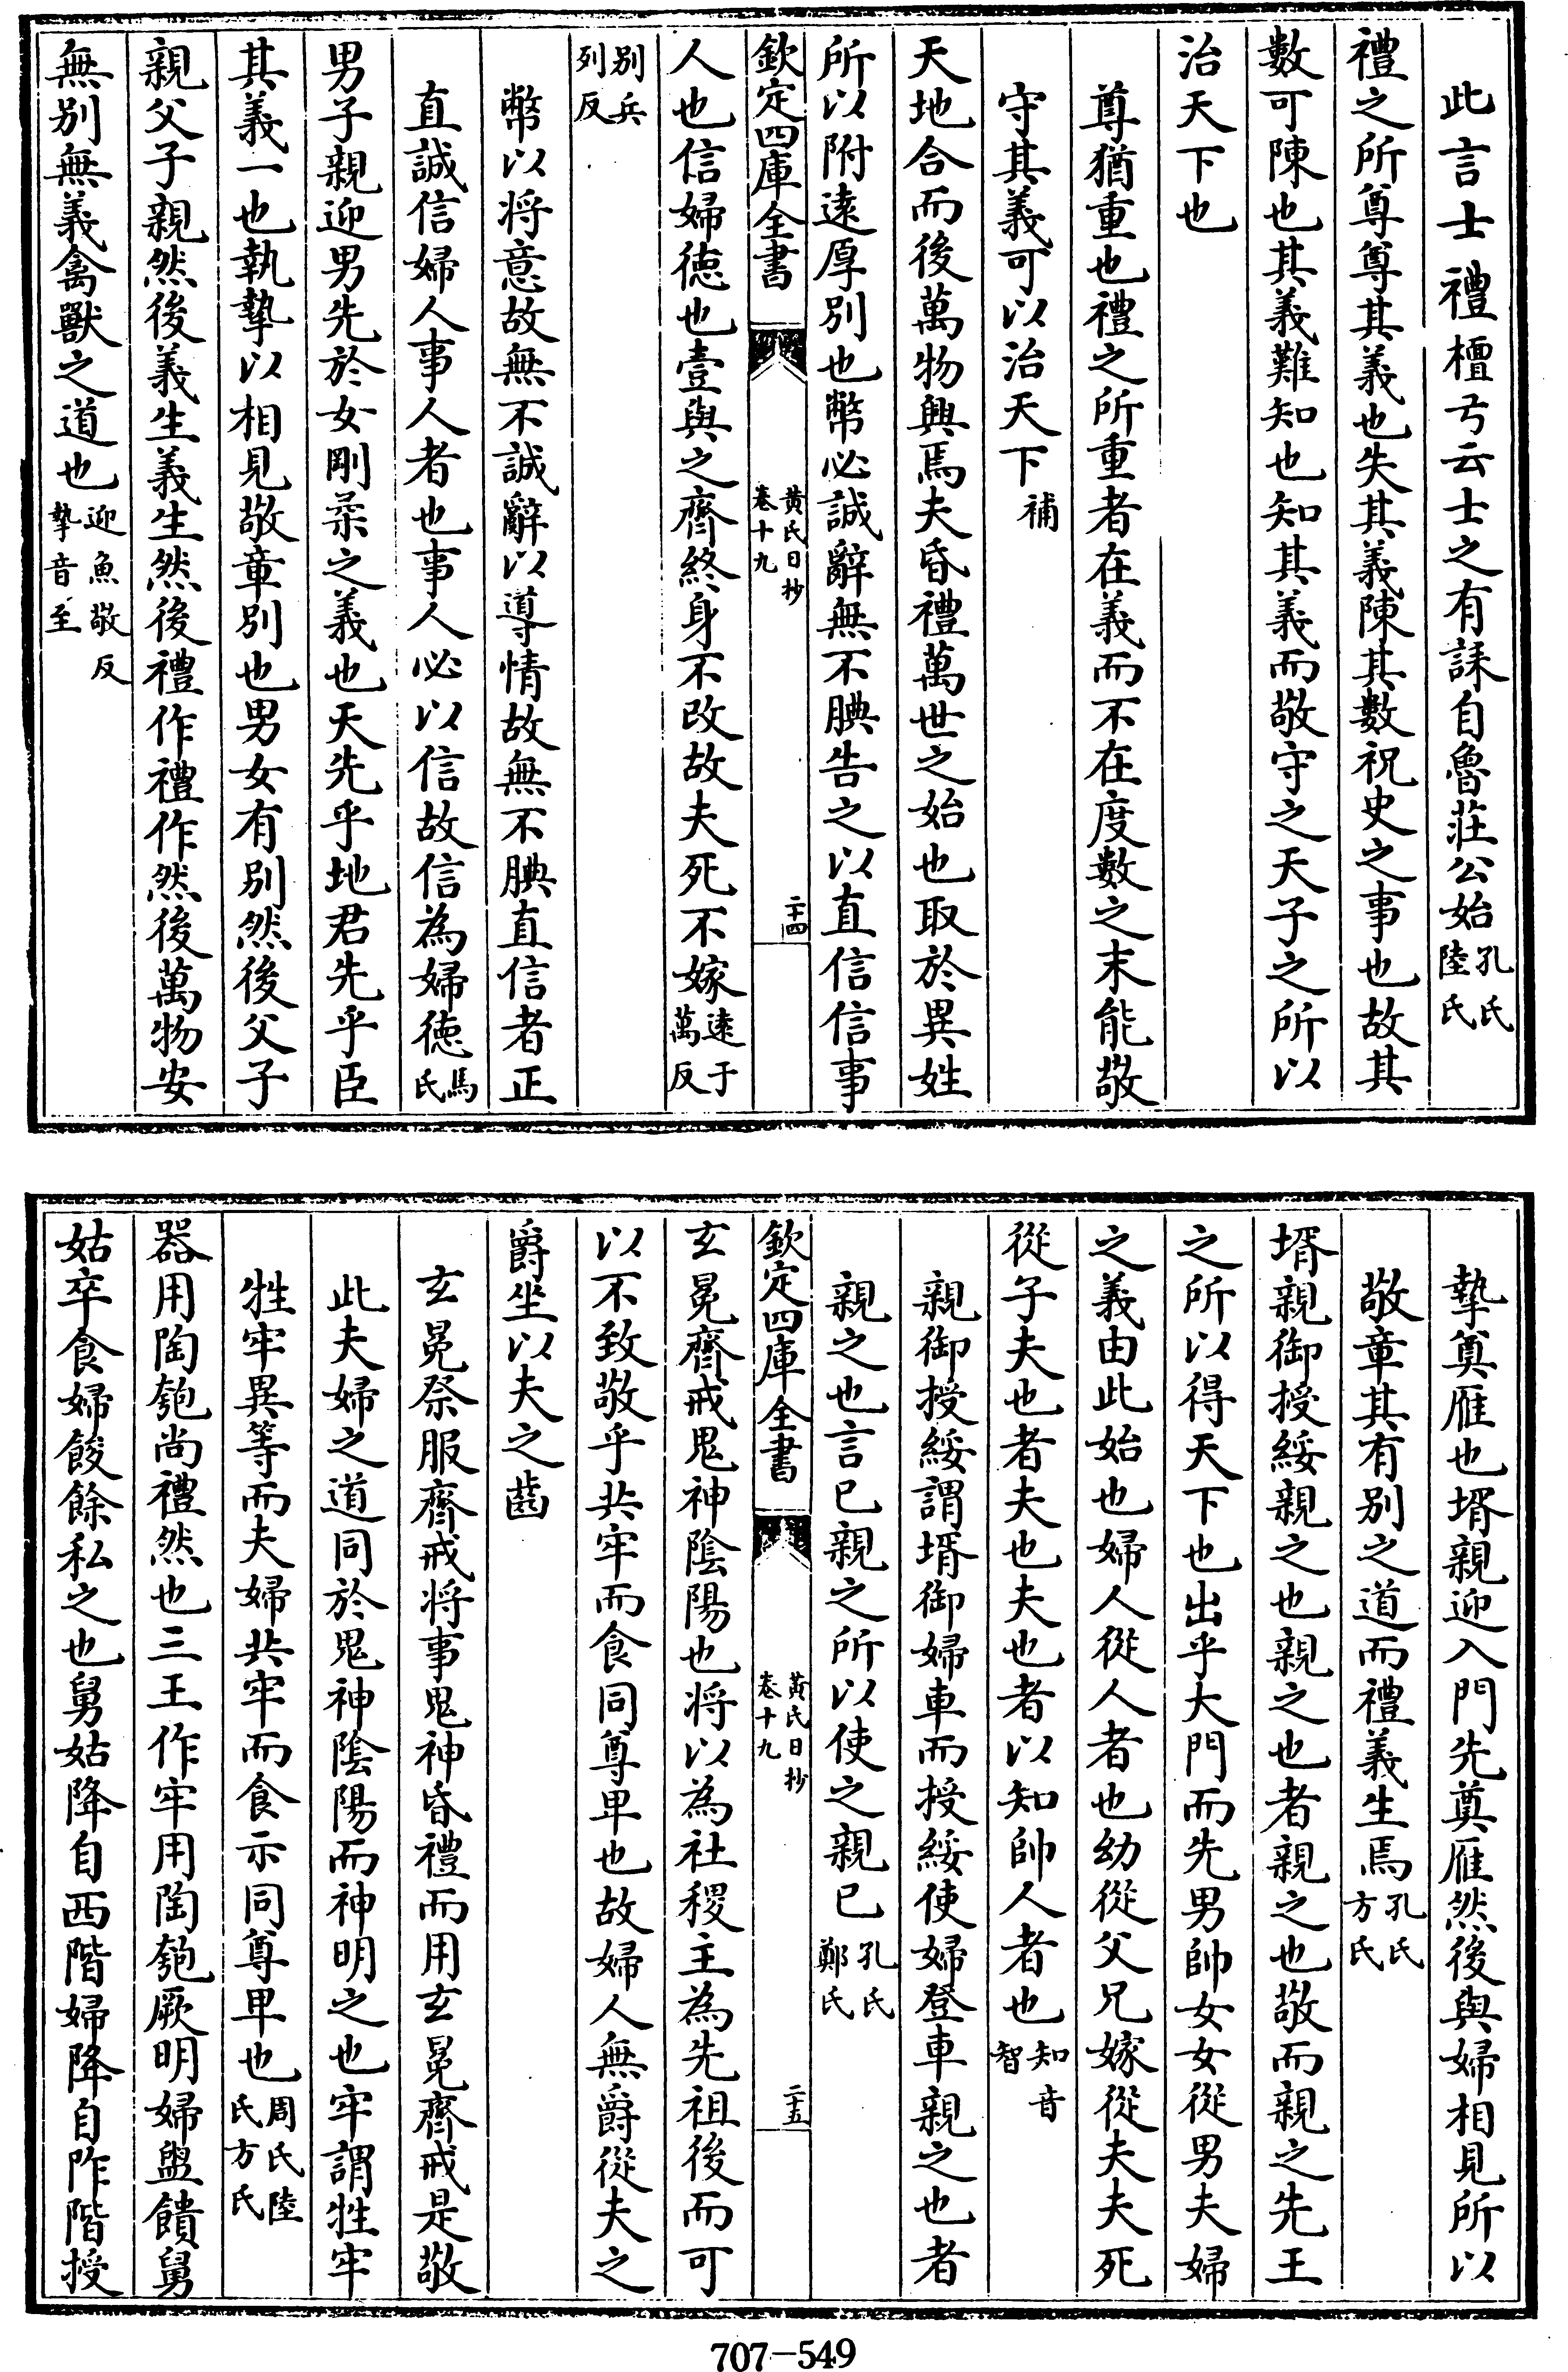 此言士禮檀弓云士之有誄自魯莊公始孔氏陸氏
禮之所尊尊其義也失其義陳其數祝史之事也故其
數可陳也其義難知也知其義而敬守之天子之所以
治天下也
尊猶重也禮之所重者在義而不在度數之末能敬
守其義可以治天下補
天地合而後萬物興焉夫昏禮萬世之始也取於異姓
所以附遠厚别也幣必誠辭無不腆告之以直信信事
欽定四庫全書 黄氏日抄卷十九 二十四
人也信婦徳也壹與之齊終身不改故夫死不嫁遠于萬反
别兵列反
幣以将意故無不誠辭以導情故無不腆直信者正
直誠信婦人事人者也事人必以信故信為婦徳馬氏
男子親迎男先於女剛柔之義也天先乎地君先乎臣
其義一也執摯以相見敬章别也男女有别然後父子
親父子親然後義生義生然後禮作禮作然後萬物安
無别無義禽獸之道也迎魚敬反摯音至
摯奠雁也壻親迎入門先奠雁然後與婦相見所以
敬章其有别之道而禮義生焉孔氏方氏
壻親御授綏親之也親之也者親之也敬而親之先王
之所以得天下也出乎大門而先男帥女女從男夫婦
之義由此始也婦人從人者也幼從父兄嫁從夫夫死
從子夫也者夫也夫也者以知帥人者也知音智
親御授綏謂壻御婦車而授綏使婦登車親之也者
親之也言已親之所以使之親已孔氏鄭氏
欽定四庫全書 黄氏日抄卷十九 二十五
玄冕齊戒鬼神陰陽也将以為社稷主為先祖後而可
以不致敬乎共牢而食同尊卑也故婦人無爵從夫之
爵坐以夫之齒
玄冕祭服齊戒将事鬼神昏禮而用玄冕齊戒是敬
此夫婦之道同於鬼神陰陽而神明之也牢謂牲牢
牲牢異等而夫婦共牢而食示同尊卑也周氏陸氏方氏
器用陶匏尚禮然也三王作牢用陶匏厥明婦盥饋舅
姑卒食婦餕餘私之也舅姑降自西階婦降自阼階授
707-549